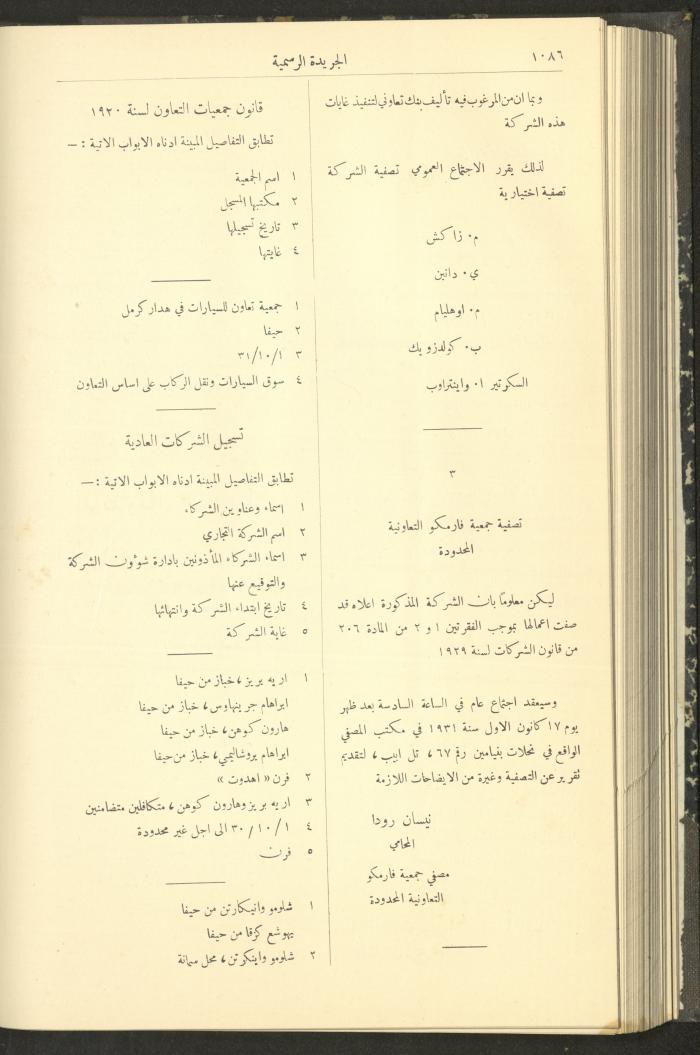 ١٠٨٦
الجريدة الرسمية
وبما ان من المرغوب فيه تأليف بنك تعاوني لتنفيذ غايات
هذه الشركة
لذلك يقرر الاجتماع العمومي تصفية الشركة
تصفية اختيارية
م٠ زاكش
ي٠ دانين
م٠ اوهليام
ب٠ كولدزويك
السكرتير ا٠ واينتراوب
٣
تصفية جمعية فارمكو التعاونية
المحدودة
ليكن معلوماً بان الشركة المذكورة اعلاه قد
صفت اعمالها بموجب الفقرتين ١ و ٢ من المادة ٢٠٦
من قانون الشركات لسنة ١٩٢٩
وسيعقد اجتماع عام في الساعة السادسة بعد ظهر
يوم ١٧ كانون الاول سنة ١٩٣١ في مكتب المصفي
الواقع في نحلات بنيامين رقم ٦٧، تل ابيب، لتقديم
تقرير عن التصفية وغيرة من الايضاحات اللازمة
نيسان رودا
المحامي
مصفي جمعية فارمكو
التعاونية المحدودة
قانون جمعيات التعاون لسنة ١٩٢٠
تطابق التفاصيل المبينة ادناه الابواب الاتية : —
١ اسم الجمعية
٢ مكتبها المسجل
٣ تاريخ تسجيلها
٤ غايتها
١ جمعية تعاون للسيارات في هدار كرمل
٢ حيفا
٣ ٣١/١٠/١
٤ سوق السيارات ونقل الركاب على اساس التعاون
تسجيل الشركات العادية
تطابق التفاصيل المبينة ادناه الابواب الاتية : —
١ اسماء وعناوين الشركاء
٢ اسم الشركة التجاري
٣ اسماء الشركاء المأذونين بادارة شوؤون الشركة
والتوقيع عنها
٤ تاريخ ابتداء الشركة وانتهائها
٥ غاية الشركة
١ اريه بريز، خباز من حيفا
ابراهام جرينهاوس، خباز من حيفا
هارون كوهن، خباز من حيفا
ابراهام يروشاليمي، خباز من حيفا
٢ فرن « اهدوت »
٣ اريه بريز وهارون كوهن، متكافلين متضامنين
٤ ٣٠/١٠/١ الى اجل غير محدودة
٥ فرن
١ شلومو وانيكارتن من حيفا
يهوشع كزفا من حيفا
٢ شلومو واينكرتن، محل سمانة